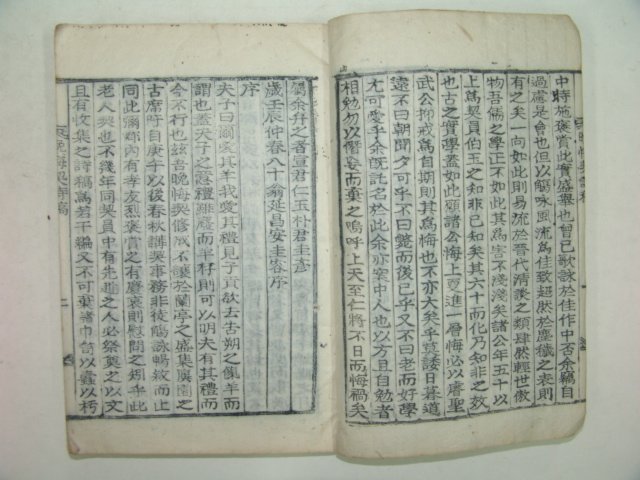 中時施褒賞此實盛擧也曾已歌詠於佳作中否余竊自
過慮是會也但以觴咏風流爲佳致超然於塵穢之表則
有之矣一向如此則易流於晉代淸談之類肆然輕世傲
物吾儒之學正不如此其爲害不淺淺矣諸公年五十以
上爲契員伯玉之知非已知矣其六十而化乃知非之效
也古之實學蓋如此願諸公悔上更進一層悔必以睿聖
武公抑戒爲自期則其爲悔也不亦大矣乎莫諉日暮道
遠不曰朝聞夕可乎不曰斃而後已乎又不曰老而好學
尤可愛乎余旣託名於此余亦案中人也以方且自勉者
相勉勿以僭妄而棄之嗚呼上天至仁將不日而悔禍矣
屬余弁之者宣君仁玉朴君圭彦
歲壬辰仲春八十翁延昌安圭容序
序
夫子曰爾愛其羊我愛其禮見子貢欲去告朔之餼羊而
謂也蓋夫子之意禮雖廢而羊存則可以明夫有其禮而
今不行也玆吾晚悔契修成不讓於蘭亭之盛集廣園之
古席吁自庚午以後春秋講契事務非徒觴詠暢敍而止
同此鄕鄰內有孝友烈褒賞之有慶哀則慰問之矧乎此
老人契也不幾年同契員中有先逝之人必祭奠之以文
且有收集之詩稿爲若干編又不可棄諸巾笥以蠹以朽